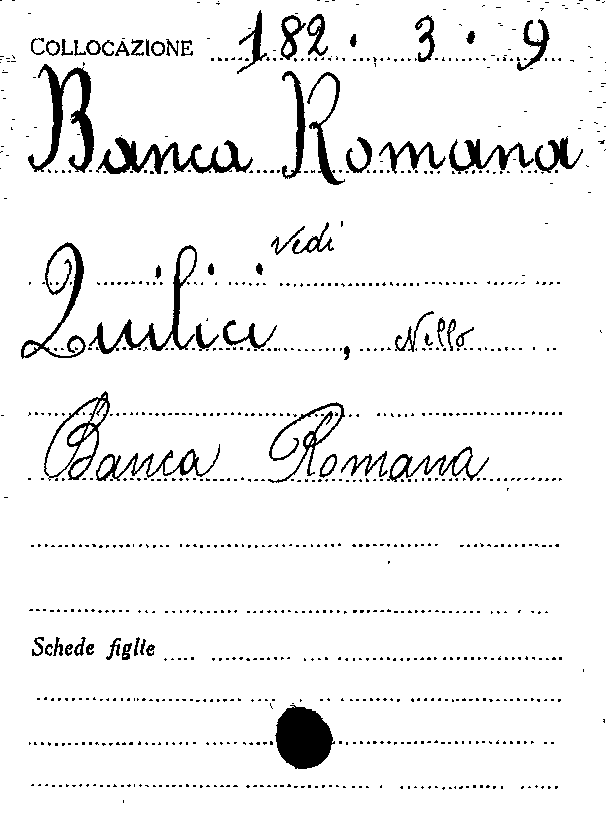 COLLOCAZIONE 182. 3. 9
Banca Romana
Vedi
Quilici, Nello
Banca Romana
Schede figlie